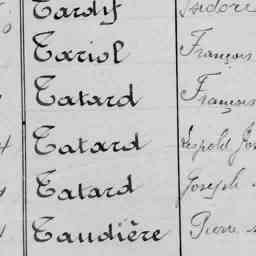 Tardif Isidore
Tariol François
Tatard François
Tatard Léopold
Tatard Joseph
Taudière Pierre